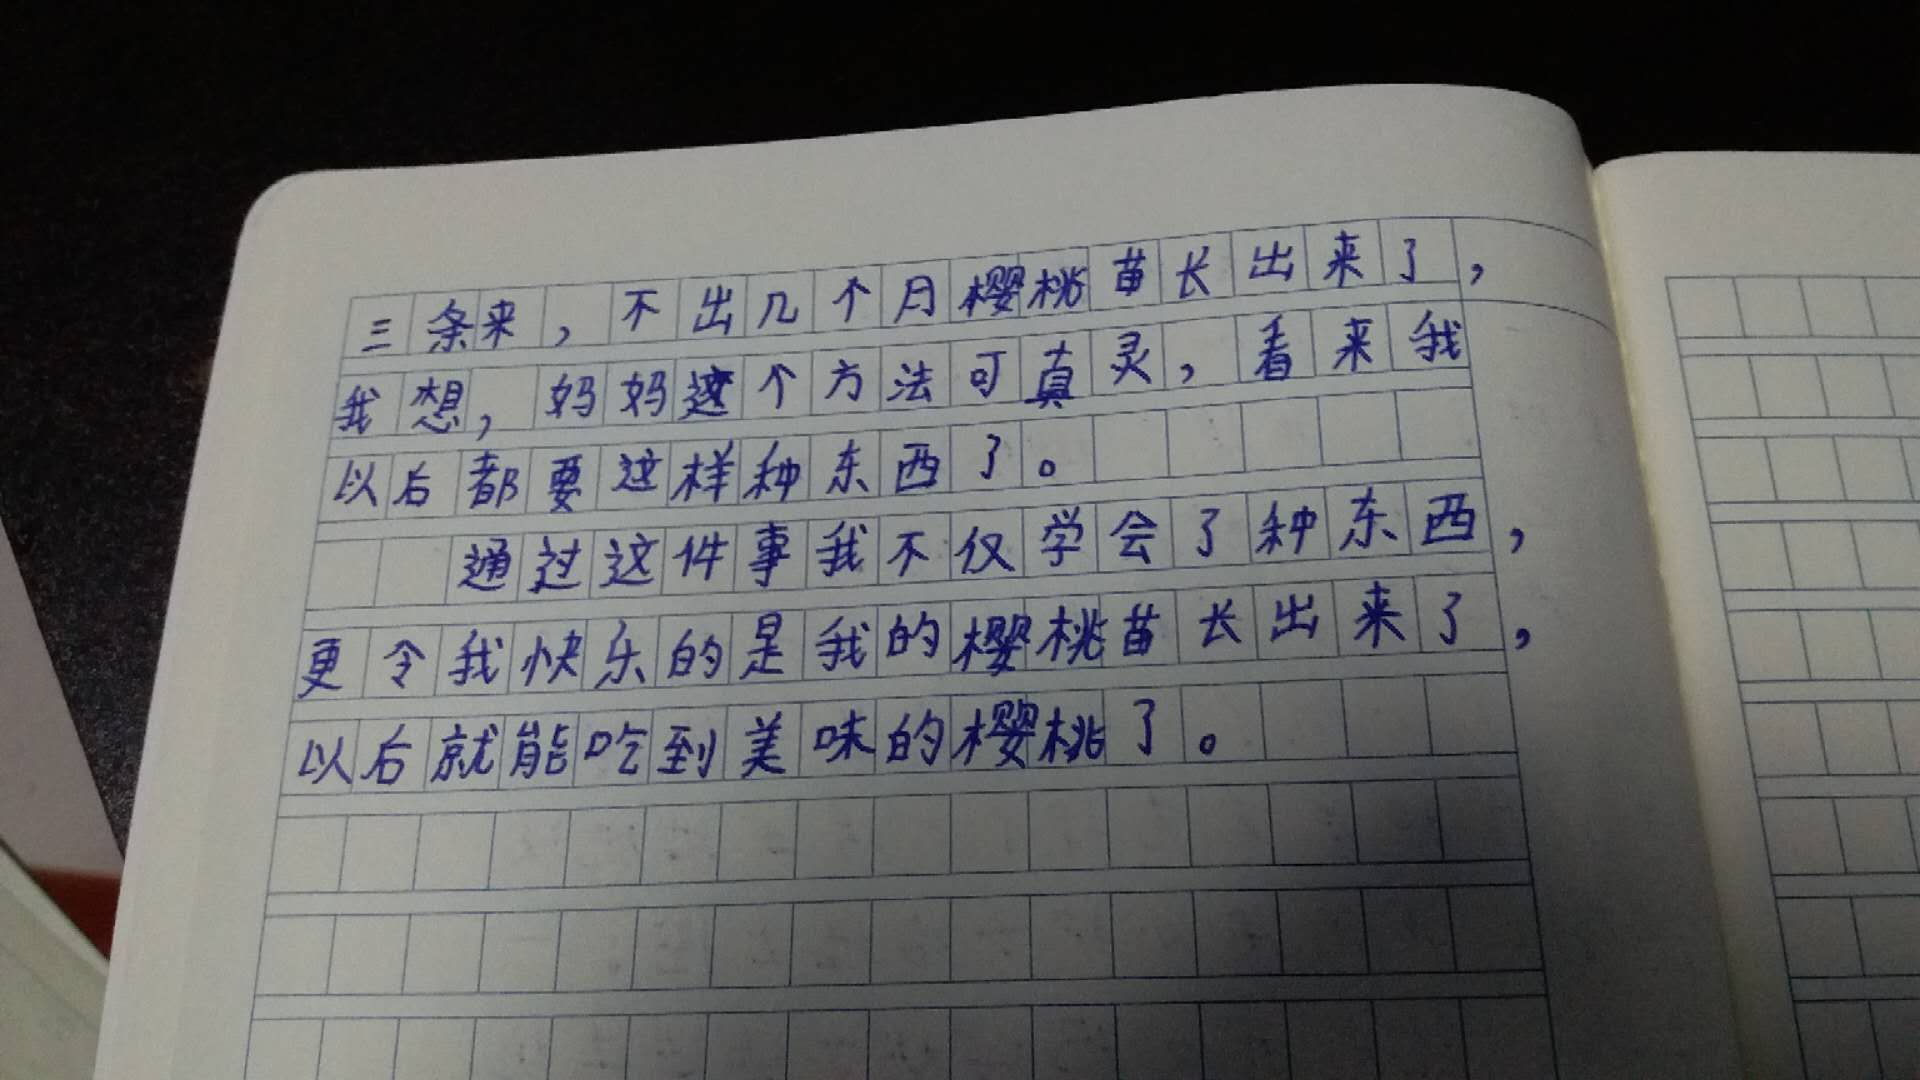 三条来，不出几个月樱桃苗长出来了，
我想，妈妈这个方法可真灵，看来我
以后都要这样种东西了。
通过这件事我不仅学会了种东西，
更令我快乐的是我的樱桃苗长出来了，
以后就能吃到美味的樱桃了。